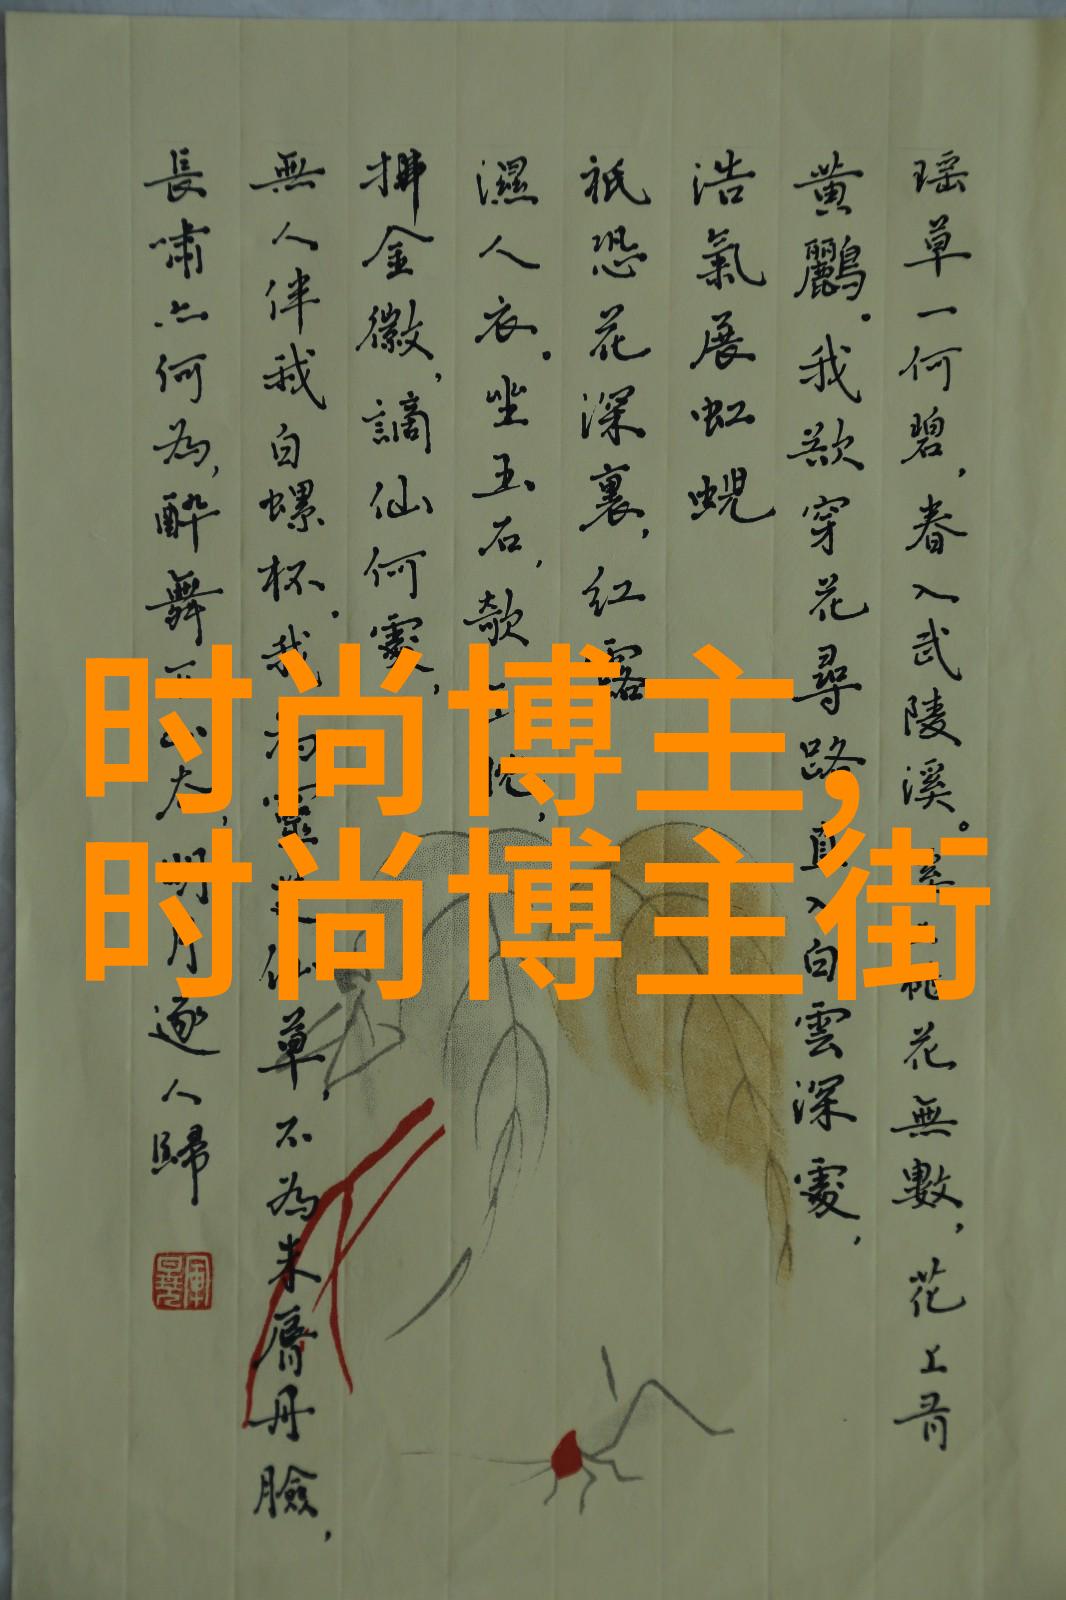 瑶草一何碧，春入武陵溪。溪上桃花無數，花上有
黄鸝。我欲穿花尋路，直入白雲深處，
浩氣展虹蜺
祇恐花深裏，紅露
濕人衣。坐玉石，欹玉枕，
拂金徽，謫仙何處，
無人伴我白螺杯。我為靈芝仙草，不為朱脣丹臉，
長嘯亦何為，醉舞下山去，明月逐人歸
时尚博主,
时尚博主街